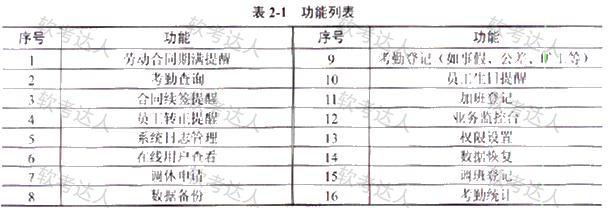 表 2-1 功能列表
序号 功能 序号 功能
1 劳动合同期满提醒 9 考勤登记（如事假、公差、旷工等）
2 考勤查询 10 员工生日提醒
3 合同续签提醒 11 加班登记
4 员工转正提醒 12 业务监控台
5 系统日志管理 13 权限设置
6 在线用户查看 14 数据恢复
7 调休申请 15 调班登记
8 数据备份 16 考勤统计
软考达人